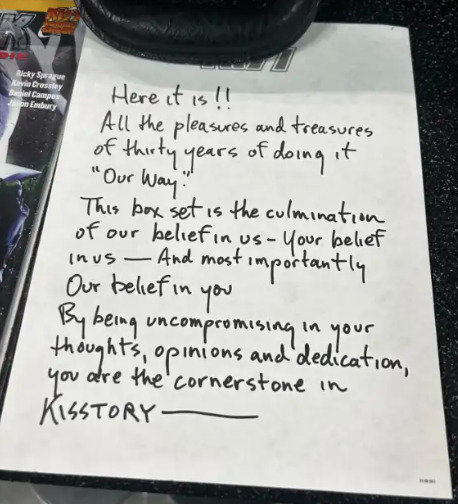 Ricky Sprague
Kevin Crossley
Daniel Campos
Jason Embury
Here it is!!
All the pleasures and treasures
of thirty years of doing it
"Our Way."
This box set is the culmination
of our belief in us - Your belief
in us — And most importantly
Our belief in you
By being uncompromising in your
thoughts, opinions and dedication,
you are the cornerstone in
KISSTORY ———